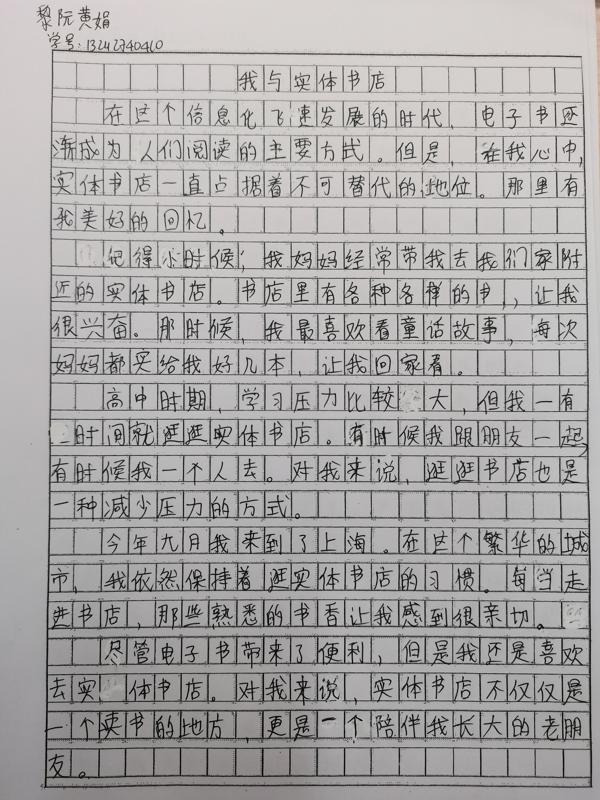 黎阮黄娟
学号:13242740410
我与实体书店
在这个信息化飞速发展的时代，电子书还
渐成为人们阅读的主要方式。但是，在我心中，
实体书店一直占据着不可替代的地位。那里有
我美好的回忆。
记得小时候，我妈妈经常带我去我们家附
近的实体书店。书店里有各种各样的书，，让我
很兴奋。那时候，我最喜欢看童话故事，每次
妈妈都买给我好几本，让我回家看。
高中时期，学习压力比较大，但我一有
时间就逛逛实体书店。有时候我跟朋友一起，
有时候我一个人去。对我来说，逛逛书店也是
一种减少压力的方式。
今年九月我来到了上海。在这个繁华的城
市，我依然保持着逛实体书店的习惯。每当走
进书店，那些熟悉的书香让我感到很亲切。
尽管电子书带来了便利，但是我还是喜欢
去实体书店。对我来说，实体书店不仅仅是
一个卖书的地方，更是一个陪伴我长大的老朋
友。